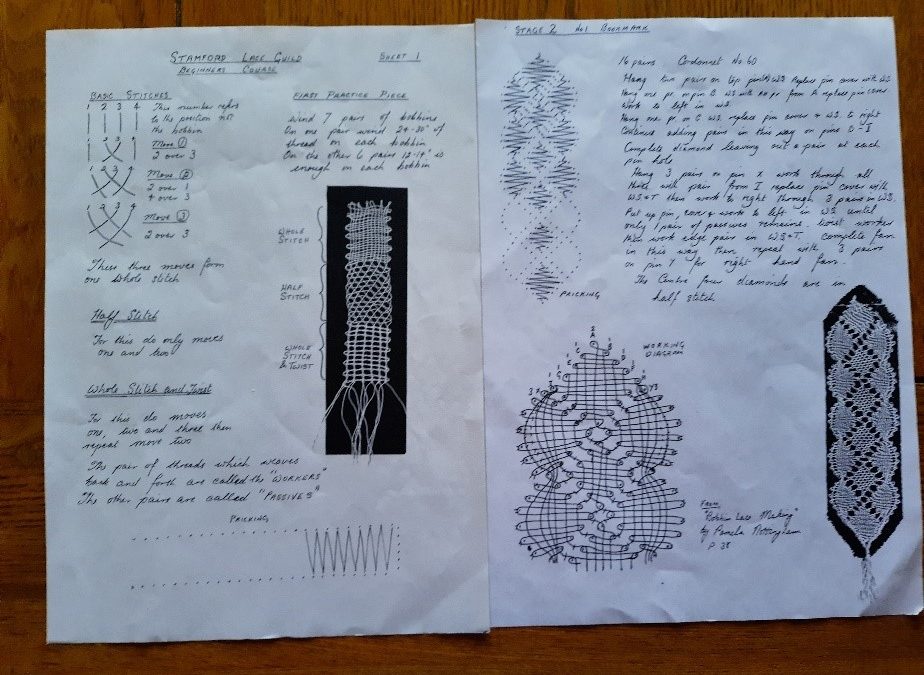 STAMFORD LACE GUILD SHEET 1
BEGINNERS COURSE
BASIC STITCHES
1 2 3 4 This number refers
to the position not
the bobbin
Move 1
2 over 3
Move 2
2 over 1
4 over 3
Move 3
2 over 3
These three moves form
one whole stitch
Half Stitch
For this do only moves
one and two
Whole Stitch and Twist
For this do moves
one, two and three then
repeat move two
The pair of threads which weaves
back and forth are called the "WORKERS"
The other pairs are called "PASSIVES"
PRICKING
FIRST PRACTICE PIECE
Wind 7 pairs of bobbins
On one pair wind 24-30" of
thread on each bobbin
On the other 6 pairs is
enough on each bobbin
WHOLE
STITCH
HALF
STITCH
WHOLE
STITCH
& TWIST
STAGE 2 No1 BOOKMARK
16 pairs Cordonnet No 60
Hang two pairs on top WS replace pin cover with WS
Hang one pr on pin B WS with pr from A replace pin cover
Work to left in WS.
Hang one pr on C WS replace pin cover & WS to right
Continue adding pairs in this way on pins D - I
Complete diamond leaving out a pair at each
pin hole
Hang 3 pairs on pin X work through all
three with pair from I replace pin cover with
WS & T then work to right through 3 pairs in WS.
Put up pin, cover & work to left in WS until
only 1 pair of passives remains. twist worker
then work edge pair in WS & T. Complete fan
in this way then repeat with 3 pairs
on pin Y for right hand fan.
The Centre four diamonds are in
half stitch
PRICKING
WORKING
DIAGRAM
From
"Bobbin Lace Making"
by Pamela Nottingham
P 38